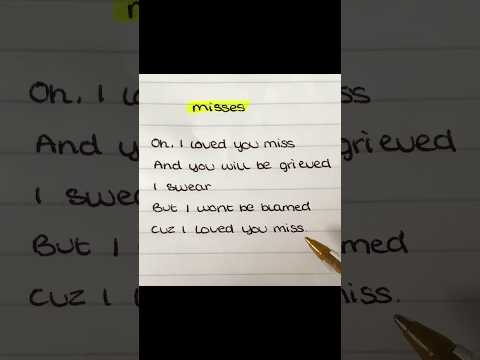 misses
Oh, I loved you miss
And you will be grieved
I swear
But I wont be blamed
cuz I loved you miss.